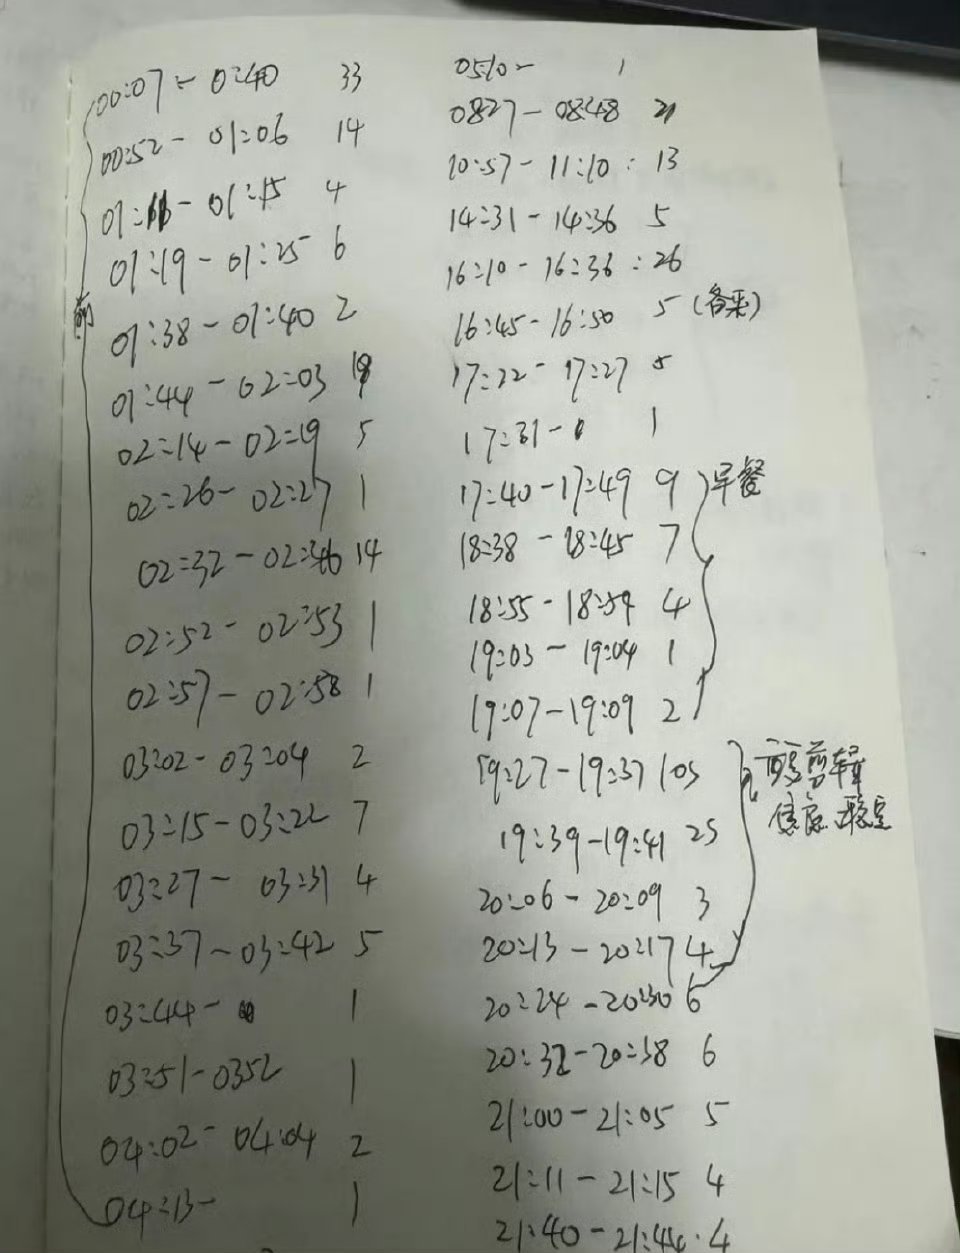 00:07-0:40 33
00:52-01:06 14
01:11-01:15 4
01:19-01:25 6
前
01:38-01:40 2
01:44-02:03 19
02:14-02:19 5
02:26-02:27 1
02:32-02:46 14
02:52-02:53 1
02:57-02:58 1
03:02-03:04 2
03:15-03:22 7
03:27-03:31 4
03:37-03:42 5
03:44- 1
03:51-0352 1
04:02-04:04 2
04:13- 1
0510- 1
0827-0848 21
10:57-11:10 : 13
14:31-14:36 5
16:10-16:36 : 26
16:45-16:50 5 (备采)
17:22-17:27 5
17:31- 1
17:40-17:49 9 早餐
18:38-18:45 7
18:55-18:59 4
19:03-19:04 1
19:07-19:09 2
19:27-19:37 10s 剪辑
19:39-19:41 2s
20:06-20:09 3
20:13-20:17 4
20:24-20:30 6
20:32-20:38 6
21:00-21:05 5
21:11-21:15 4
21:40-21:44 . 4